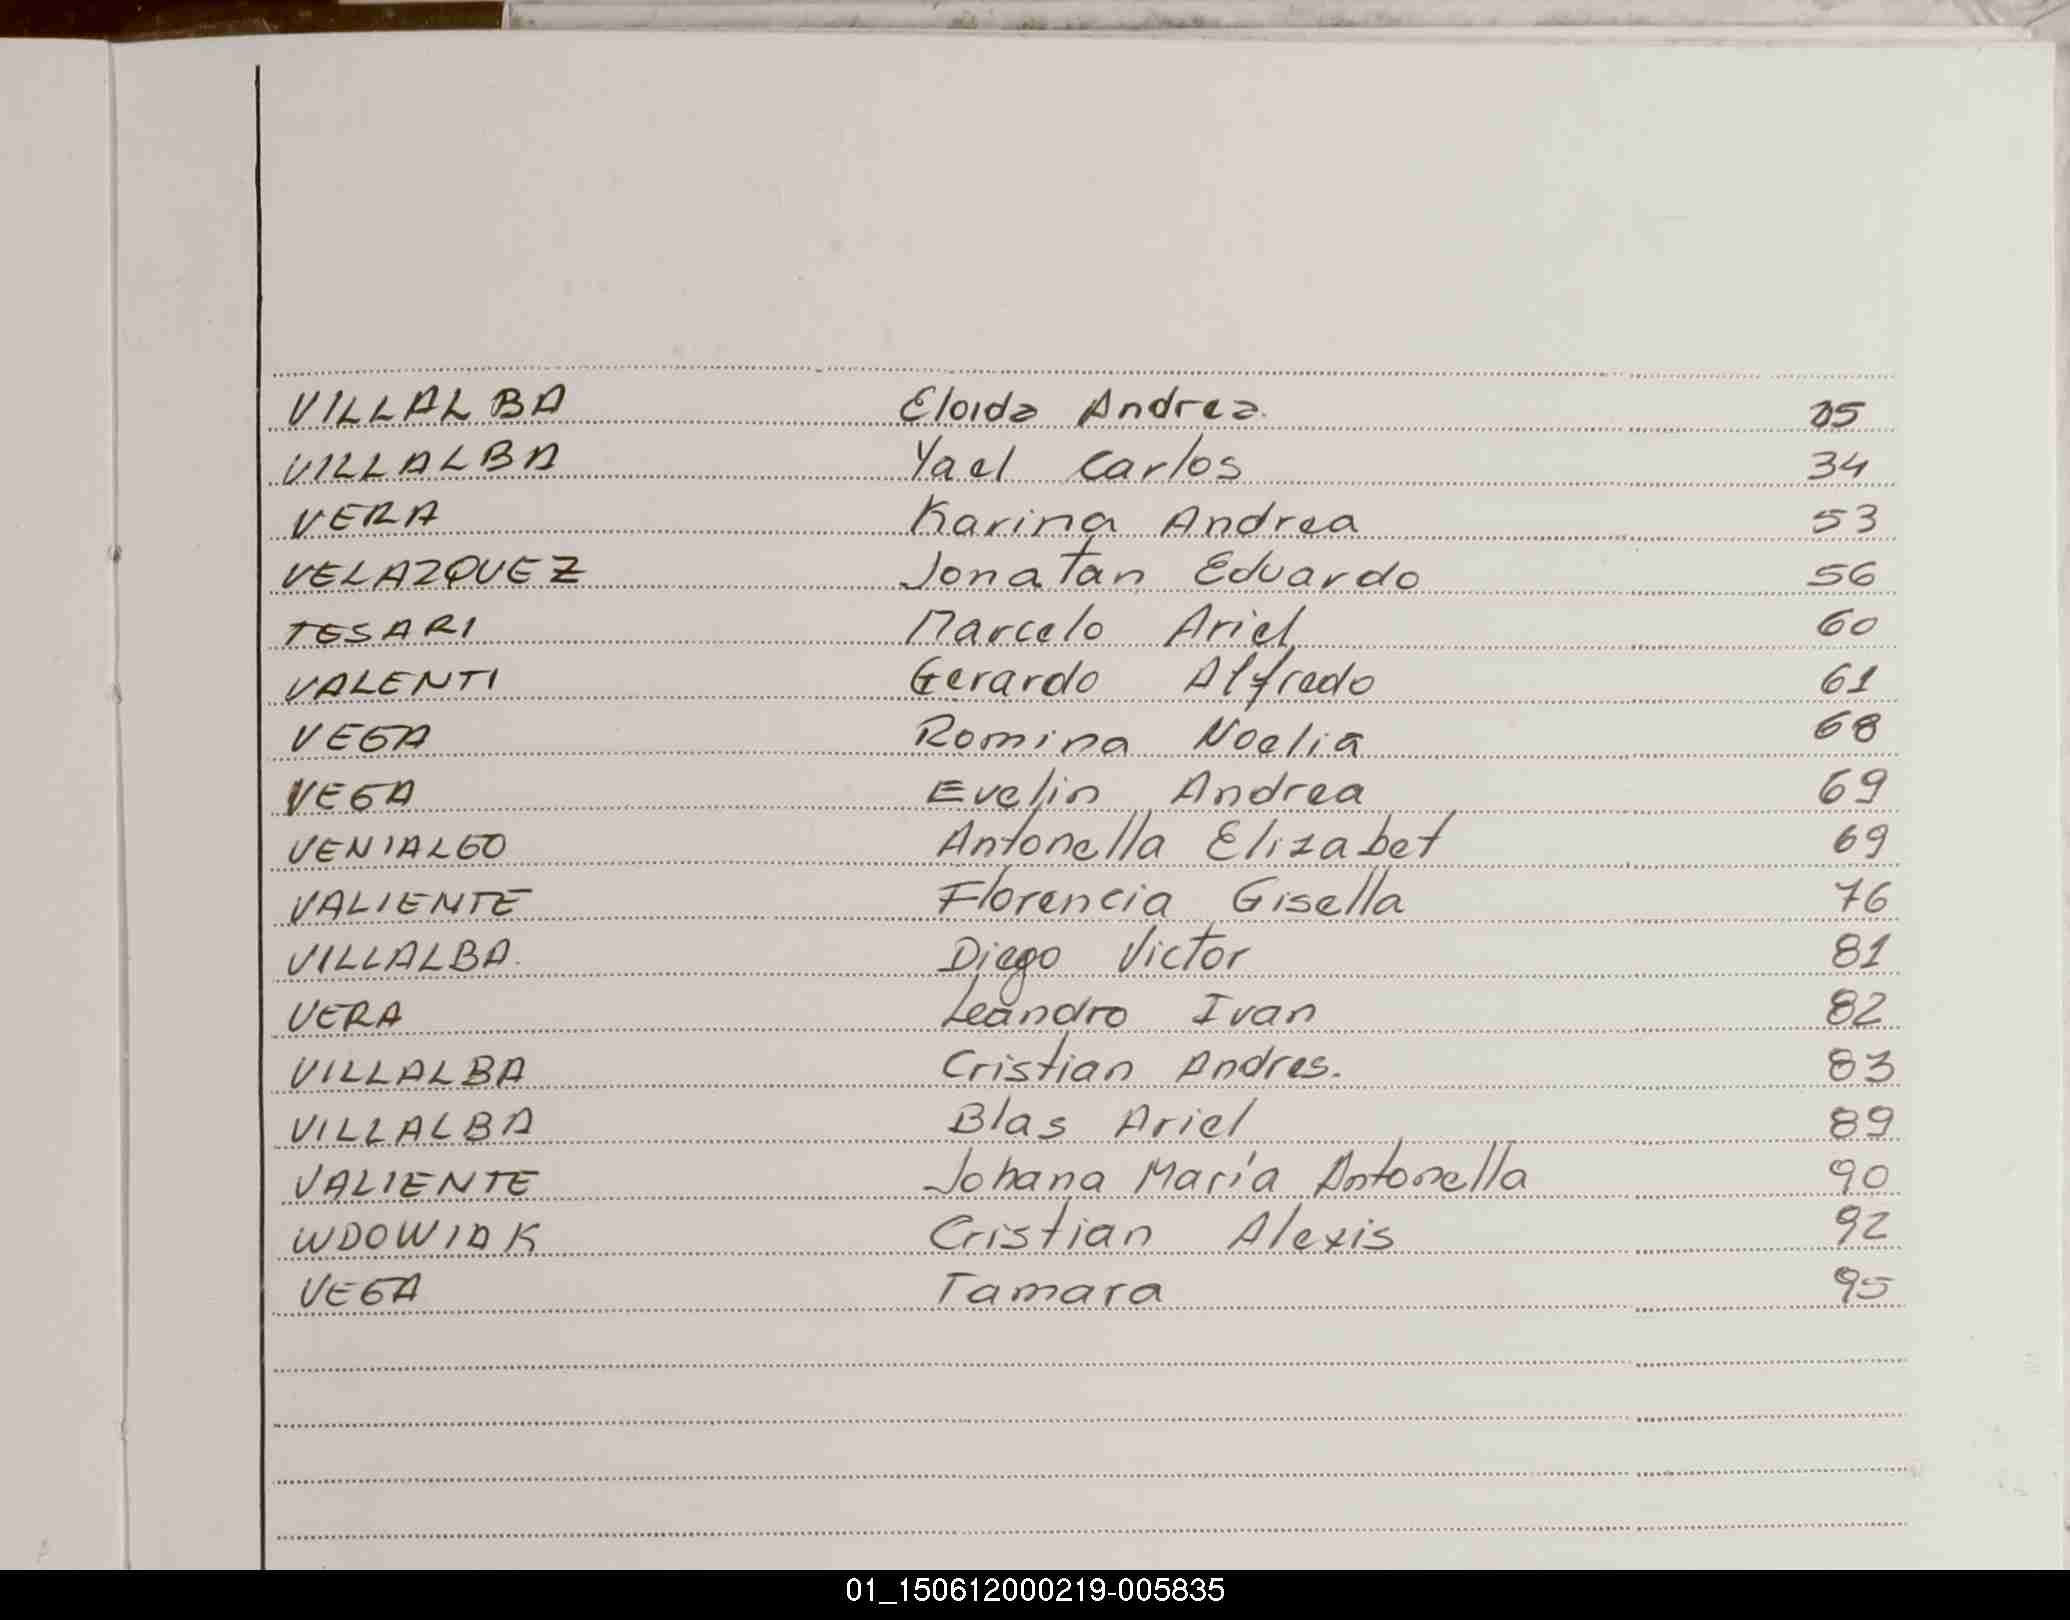 VILLALBA Eloida Andrea. 05
VILLALBA Yael Carlos 34
VERA Karina Andrea 53
VELAZQUEZ Jonatan Eduardo 56
TESARI Marcelo Ariel 60
VALENTI Gerardo Alfredo 61
VEGA Romina Noelia 68
VEGA Evelin Andrea 69
VENIALGO Antonella Elizabet 69
VALIENTE Florencia Gisella 76
VILLALBA. Diego Victor 81
VERA Leandro Ivan 82
VILLALBA Cristian Andres. 83
VILLALBA Blas Ariel 89
VALIENTE Johana María Antonella 90
WDOWIAK Cristian Alexis 92
VEGA Tamara 95
01_150612000219-005835